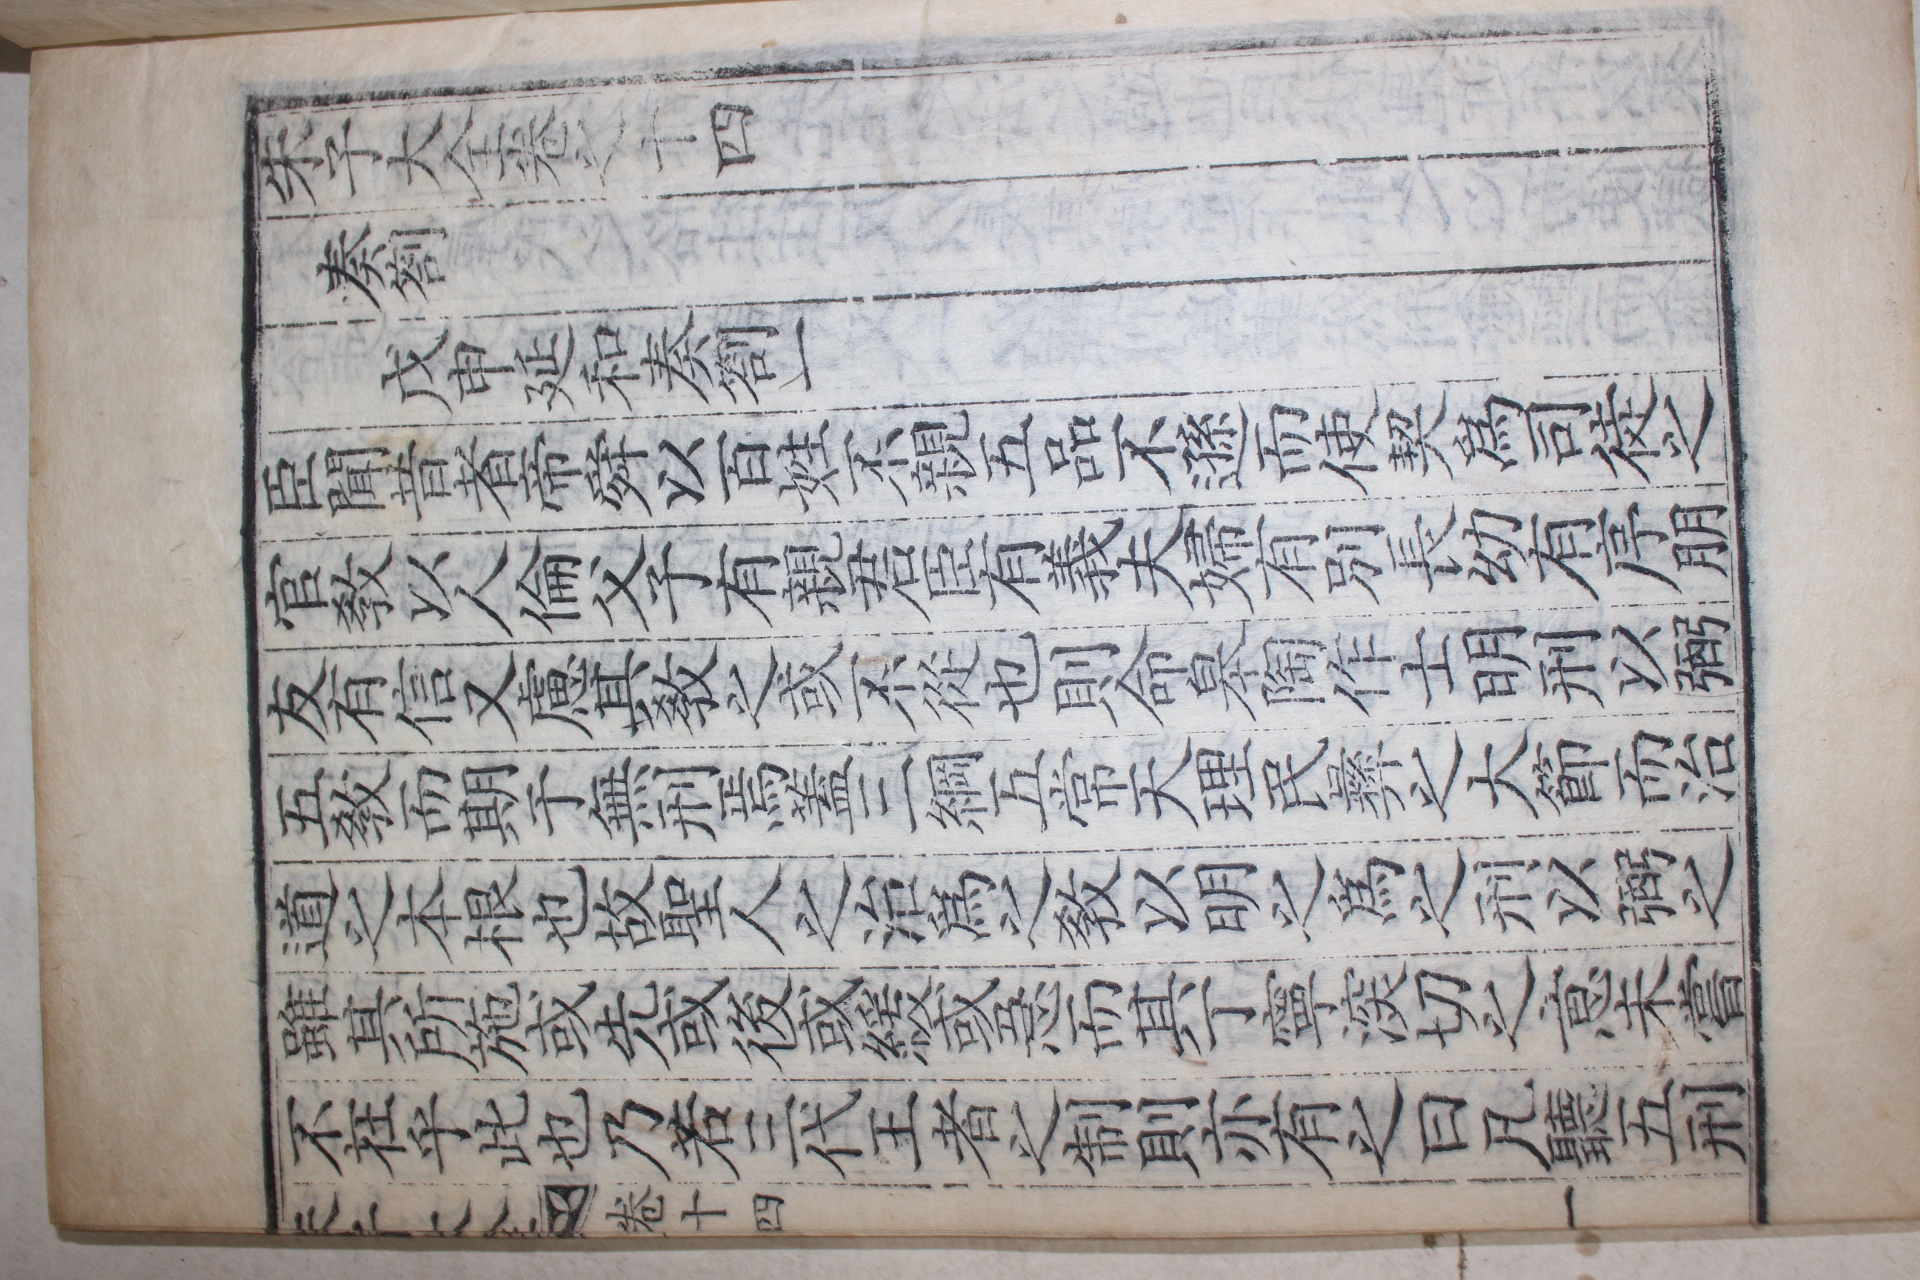 朱子大全卷之十四
奏劄
戊申延和奏劄一
臣聞昔者帝舜以百姓不親五品不遜而使契爲司徒之
官敎以人倫父子有親君臣有義夫婦有別長幼有序朋
友有信又慮其敎之或不從也則命皐陶作士明刑以弼
五敎而期于無刑焉蓋三綱五常天理民彝之大節而治
道之本根也故聖人之治爲之敎以明之爲之刑以弼之
雖其所施或先或後或緩或急而其丁寧深切之意未嘗
不在乎此也乃若三代王者之制則亦有之曰凡聽五刑
朱子大全 卷十四 一